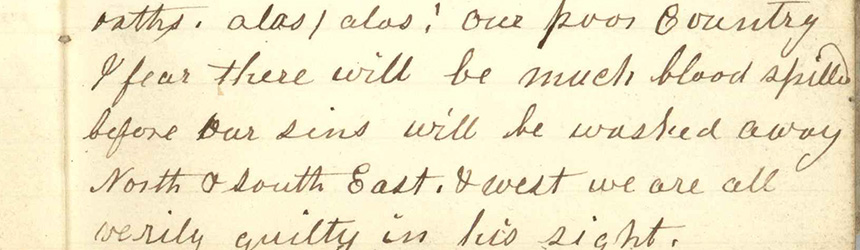 oaths. alas / alas! our poor Country
I fear there will be much blood spilled
before our sins will be washed away
North & South East. & west we are all
verily guilty in his sight.